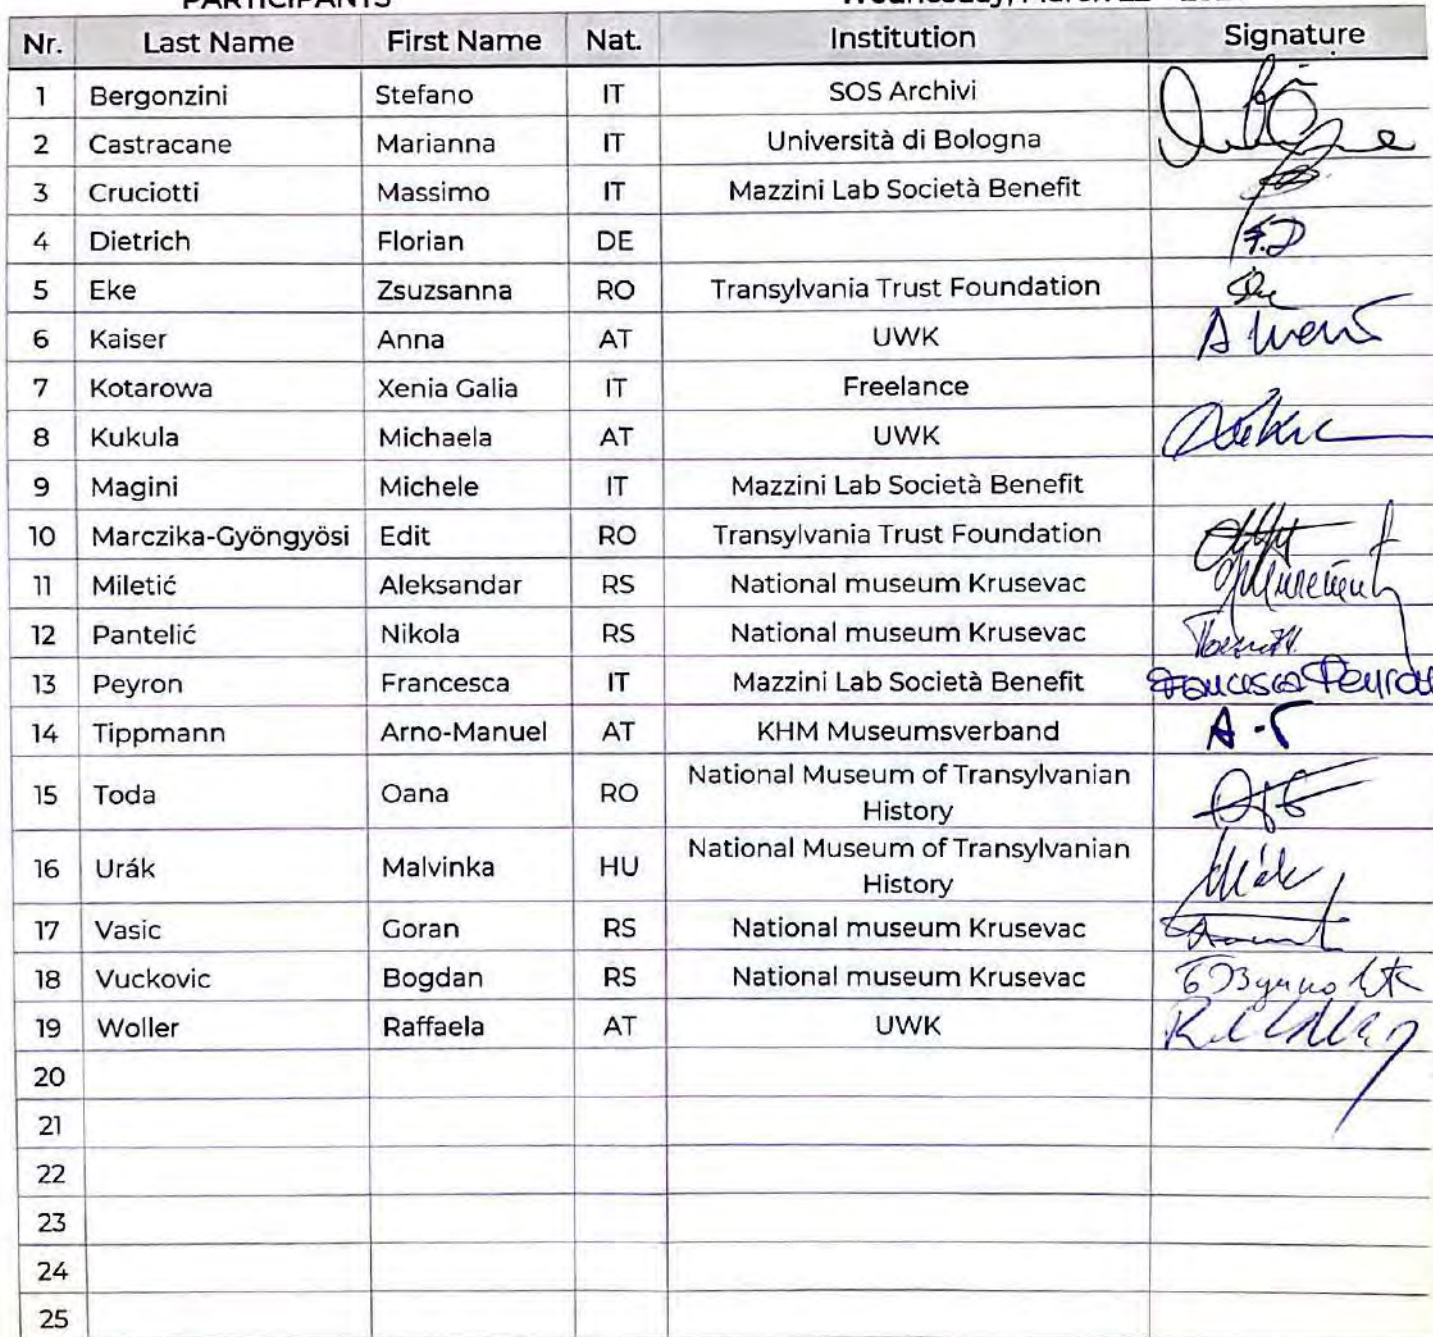 PARTICIPANTS Wednesday, March 22
Nr. Last Name First Name Nat. Institution Signature
1 Bergonzini Stefano IT SOS Archivi
2 Castracane Marianna IT Università di Bologna
3 Cruciotti Massimo IT Mazzini Lab Società Benefit
4 Dietrich Florian DE F.D
5 Eke Zsuzsanna RO Transylvania Trust Foundation
6 Kaiser Anna AT UWK
7 Kotarowa Xenia Galia IT Freelance
8 Kukula Michaela AT UWK
9 Magini Michele IT Mazzini Lab Società Benefit
10 Marczika-Gyöngyösi Edit RO Transylvania Trust Foundation
11 Miletić Aleksandar RS National museum Krusevac
12 Pantelić Nikola RS National museum Krusevac
13 Peyron Francesca IT Mazzini Lab Società Benefit Francesca Peyron
14 Tippmann Arno-Manuel AT KHM Museumsverband A.T
15 Toda Oana RO National Museum of Transylvanian
History
16 Urák Malvinka HU National Museum of Transylvanian
History
17 Vasic Goran RS National museum Krusevac
18 Vuckovic Bogdan RS National museum Krusevac
19 Woller Raffaela AT UWK
20
21
22
23
24
25